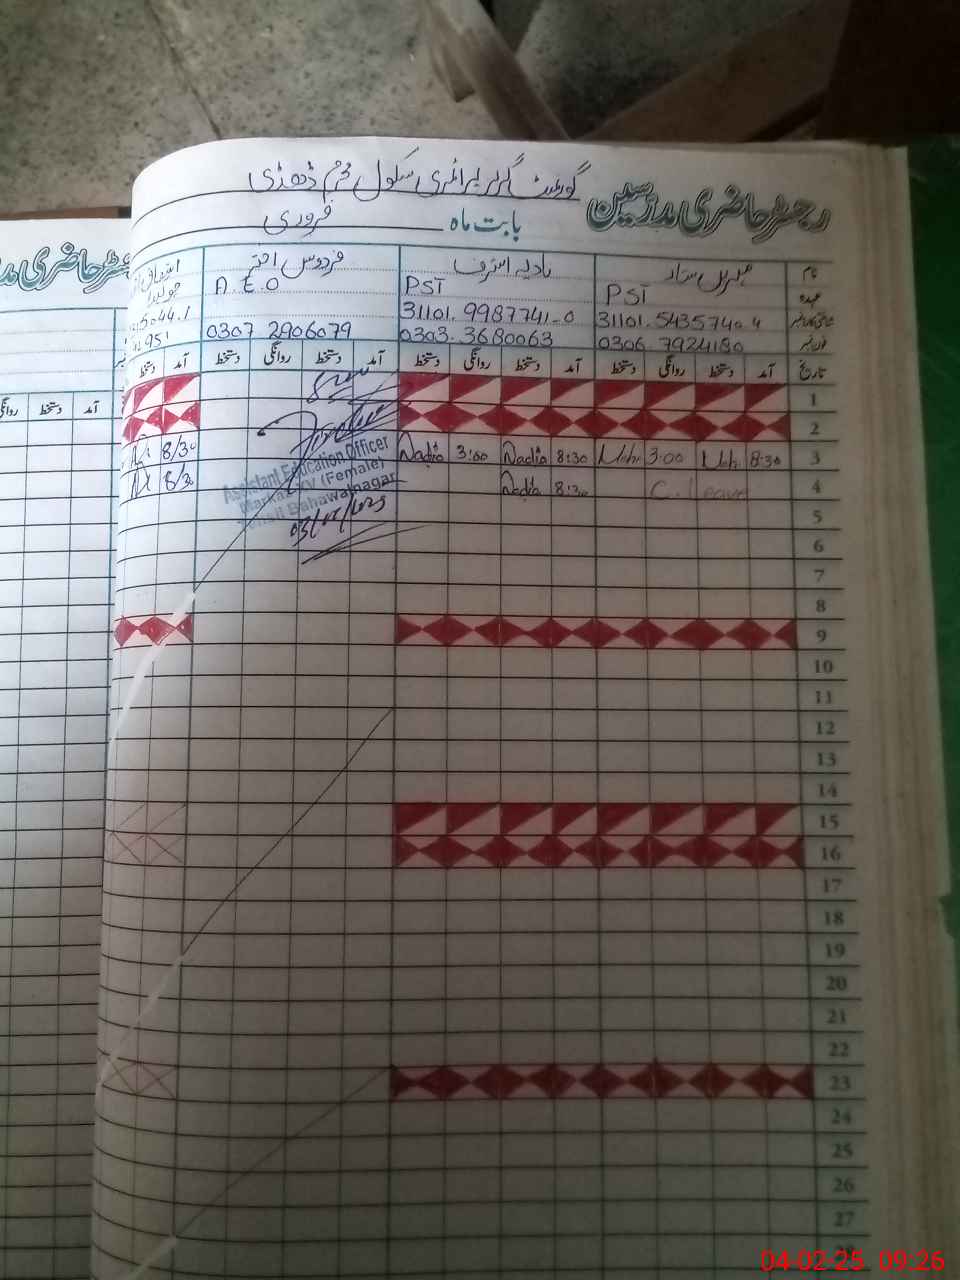 رجسٹر حاضری مدرسین گورنمنٹ گرلز پرائمری سکول
بابت ماہ فروری
نام نادیہ اشرف فردوس اختر
عہدہ PST PST A.E.O
31101.5435740.4 31101.9987741-0 5044.1
فون نمبر 0306 7924180 0303.3680063 0307 2906079 951
تاریخ آمد دستخط روانگی دستخط آمد دستخط روانگی دستخط آمد دستخط روانگی دستخط آمد دستخط
آمد دستخط روانگی
1
2
3 8:30 3:00 8:30 Nadia 3:00 Nadia 8/30
4 C.leave 8:30 Nadia 8/30
Assistant Education Officer
Markaz XV (Female)
Tehsil Bahawalnagar
03/02/2025
5
6
7
8
9
10
11
12
13
14
15
16
17
18
19
20
21
22
23
24
25
26
27
28
04-02-25 09:26